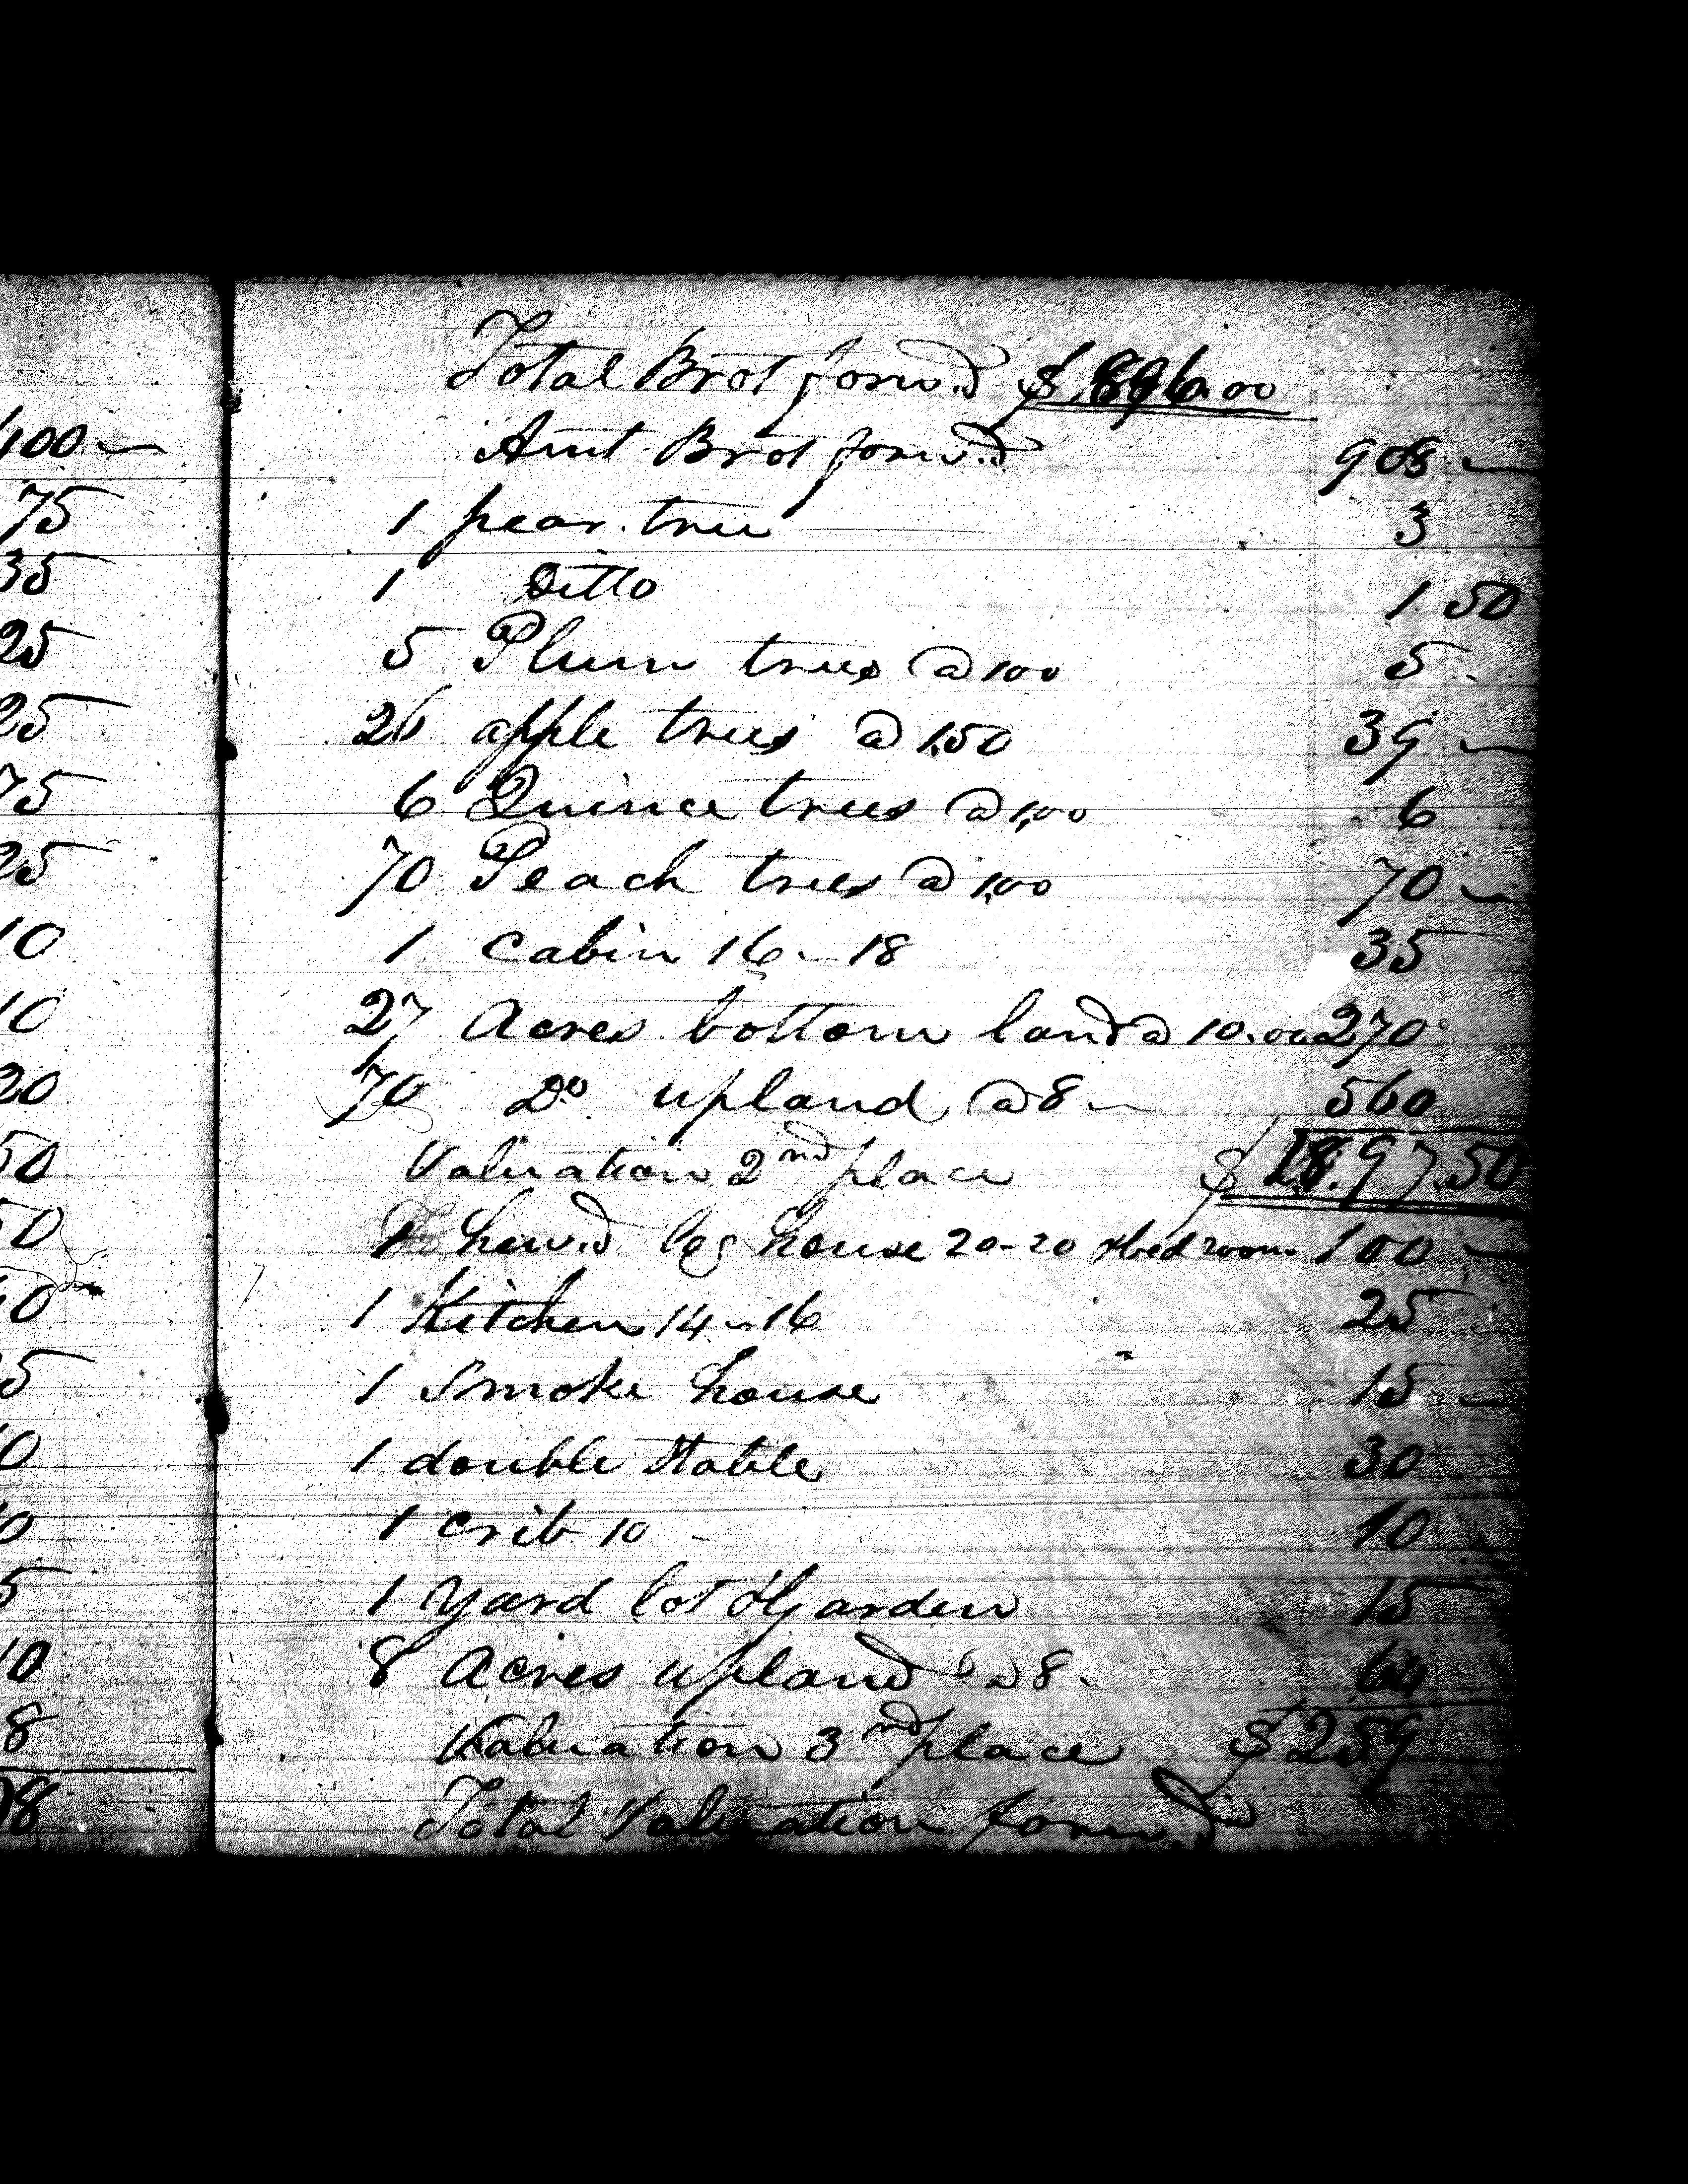 100 —
75
35
25
25
75
25
10
10
20
50
50
40
5
0
0
5
10
8
98
Total Brot forw.d $ 896.00
Amt Brot forw.d 908 —
1 pear tree 3
1 Ditto 1 50
5 Plum trees @ 100 5
26 apple trees @ 1.50 39 —
6 Quince trees @ 1.00 6
70 Peach trees @ 1.00 70 —
1 Cabin 16 - 18 35
27 Acres bottom land @ 10.00 270
70 Do. upland @ 8 — 560
Valuation 2nd place $ 1897.50
1 hew.d log house 20-20 & bed room 100 —
1 Kitchen 14 - 16 25
1 Smoke house 15 —
1 double Stable 30
1 Crib 10 - 10
1 Yard lot & Garden 15
8 Acres upland @ 8. 64
Valuation 3nd place $ 259
Total Valuation forw.d